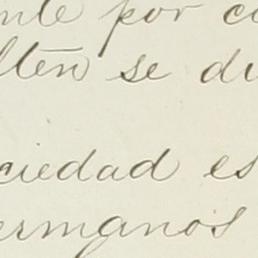 nte por co
lten se du
ciedad es
ermanos